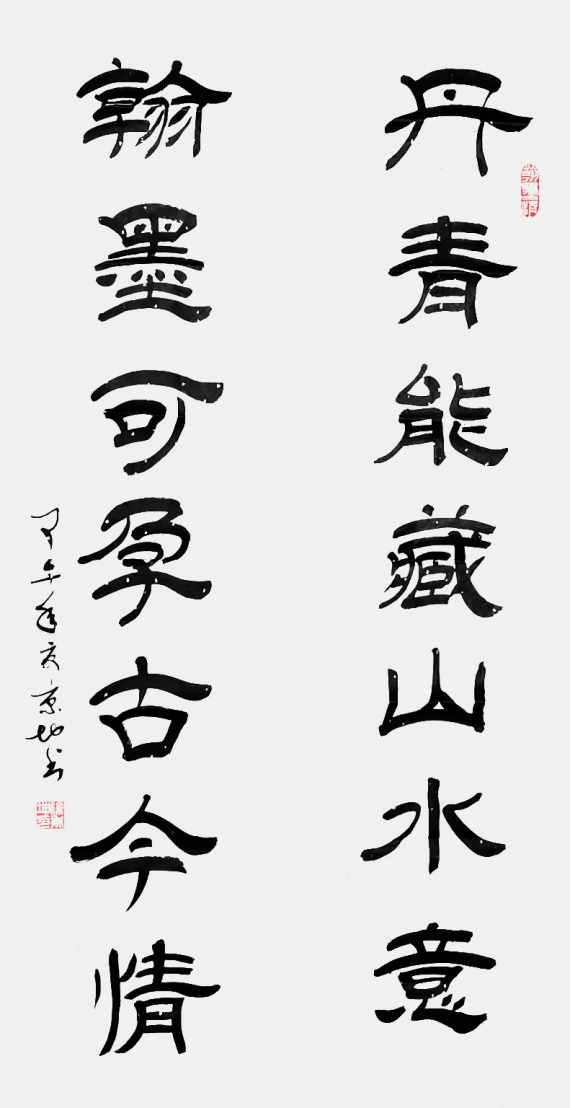 丹青能藏山水意
翰墨可孕古今情
甲午年夏京均书